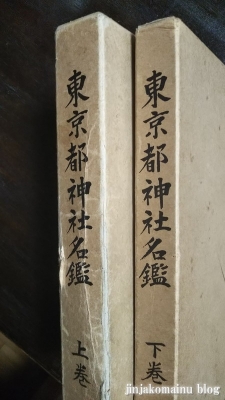 東京都神社名鑑
上巻
東京都神社名鑑
下巻
jinjakomainu blog